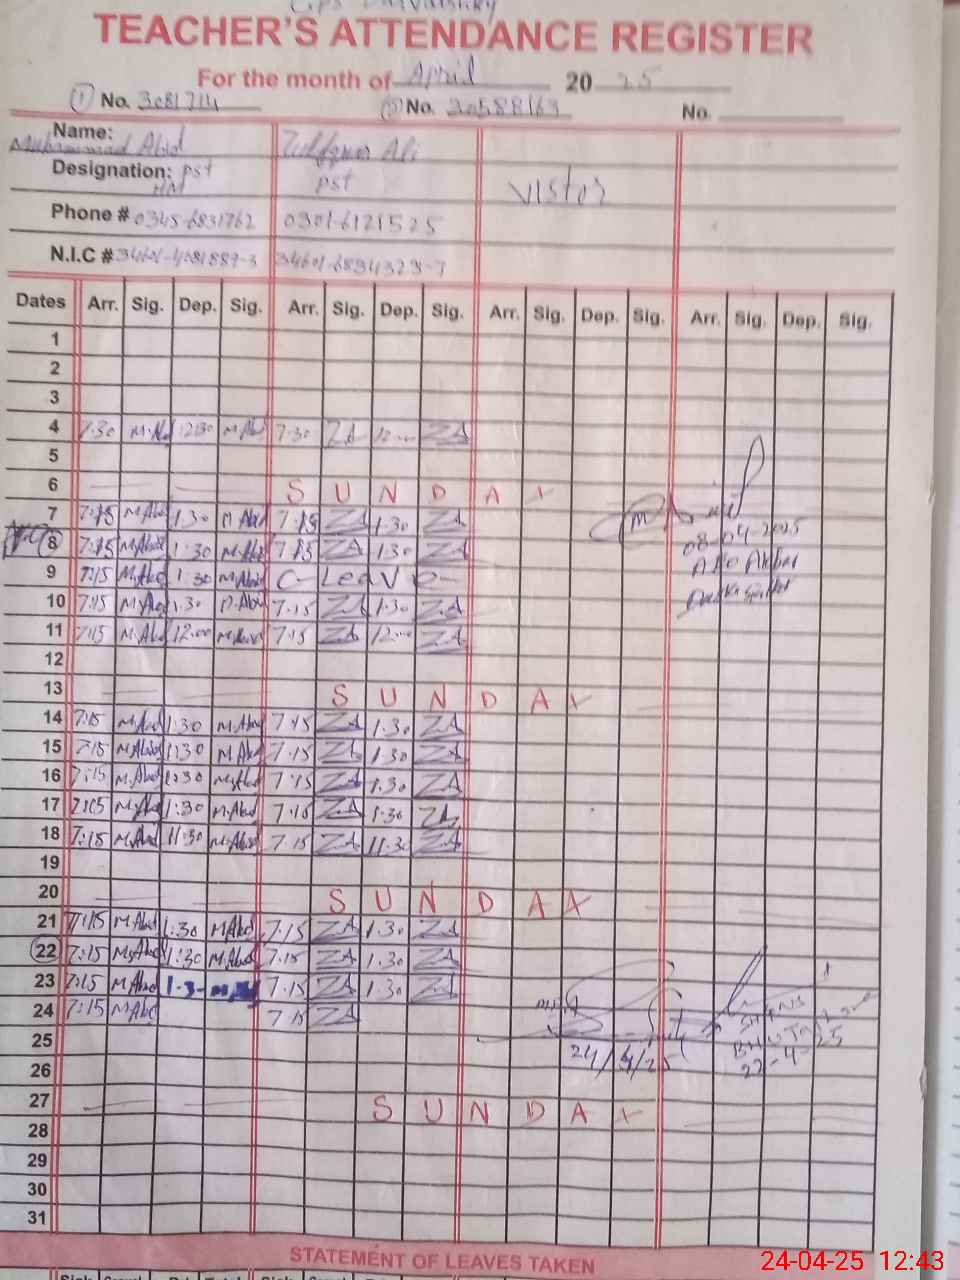 TEACHER'S ATTENDANCE REGISTER
For the month of April 20 25
① No. 3081714 ② No. 30588163 No.
Name: Muhammad Abid Zulfqar Ali
Designation: PST PST Vistor
HM
Phone # 0345-6831762 0301-6121525
N.I.C # 34601-4081889-3 34601-6894323-7
Dates Arr. Sig. Dep. Sig. Arr. Sig. Dep. Sig. Arr. Sig. Dep. Sig. Arr. Sig. Dep. Sig.
1
2
3
4 7:30 M.Abd 12:30 M.Abd 7.30 ZA 12.00 ZA
5
6 S U N D A Y
7 7:15 M.Abd 1.30 M.Abd 7.15 ZA 1.30 ZA
8 7:15 M.Abd 1:30 M.Abd 7.15 ZA 1.30 ZA 08-04-2025
9 7:15 M.Abd 1:30 M.Abd C- Leave AEO Akbar
10 7:15 M.Abd 1.30 M.Abd 7.15 ZA 1.30 ZA
11 7:15 M.Abd 12.00 M.Abd 7.15 ZA 12.00 ZA
12
13 S U N D A Y
14 7:15 M.Abd 1:30 M.Abd 7.15 ZA 1.30 ZA
15 7:15 M.Abd 1:30 M.Abd 7.15 ZA 1.30 ZA
16 7:15 M.Abd 1:30 M.Abd 7.15 ZA 1.30 ZA
17 7:15 M.Abd 1:30 M.Abd 7.15 ZA 1.30 ZA
18 7:15 M.Abd 11:30 M.Abd 7.15 ZA 11.30 ZA
19
20 S U N D A Y
21 7:15 M.Abd 1:30 M.Abd 7.15 ZA 1.30 ZA
22 7:15 M.Abd 1:30 M.Abd 7.15 ZA 1.30 ZA
23 7:15 M.Abd 1.3- 7.15 ZA 1.30 ZA
24 7:15 M.Abd 7.15 ZA
25 24/4/25 22-4-25
26
27 S U N D A Y
28
29
30
31
STATEMENT OF LEAVES TAKEN
24-04-25 12:43